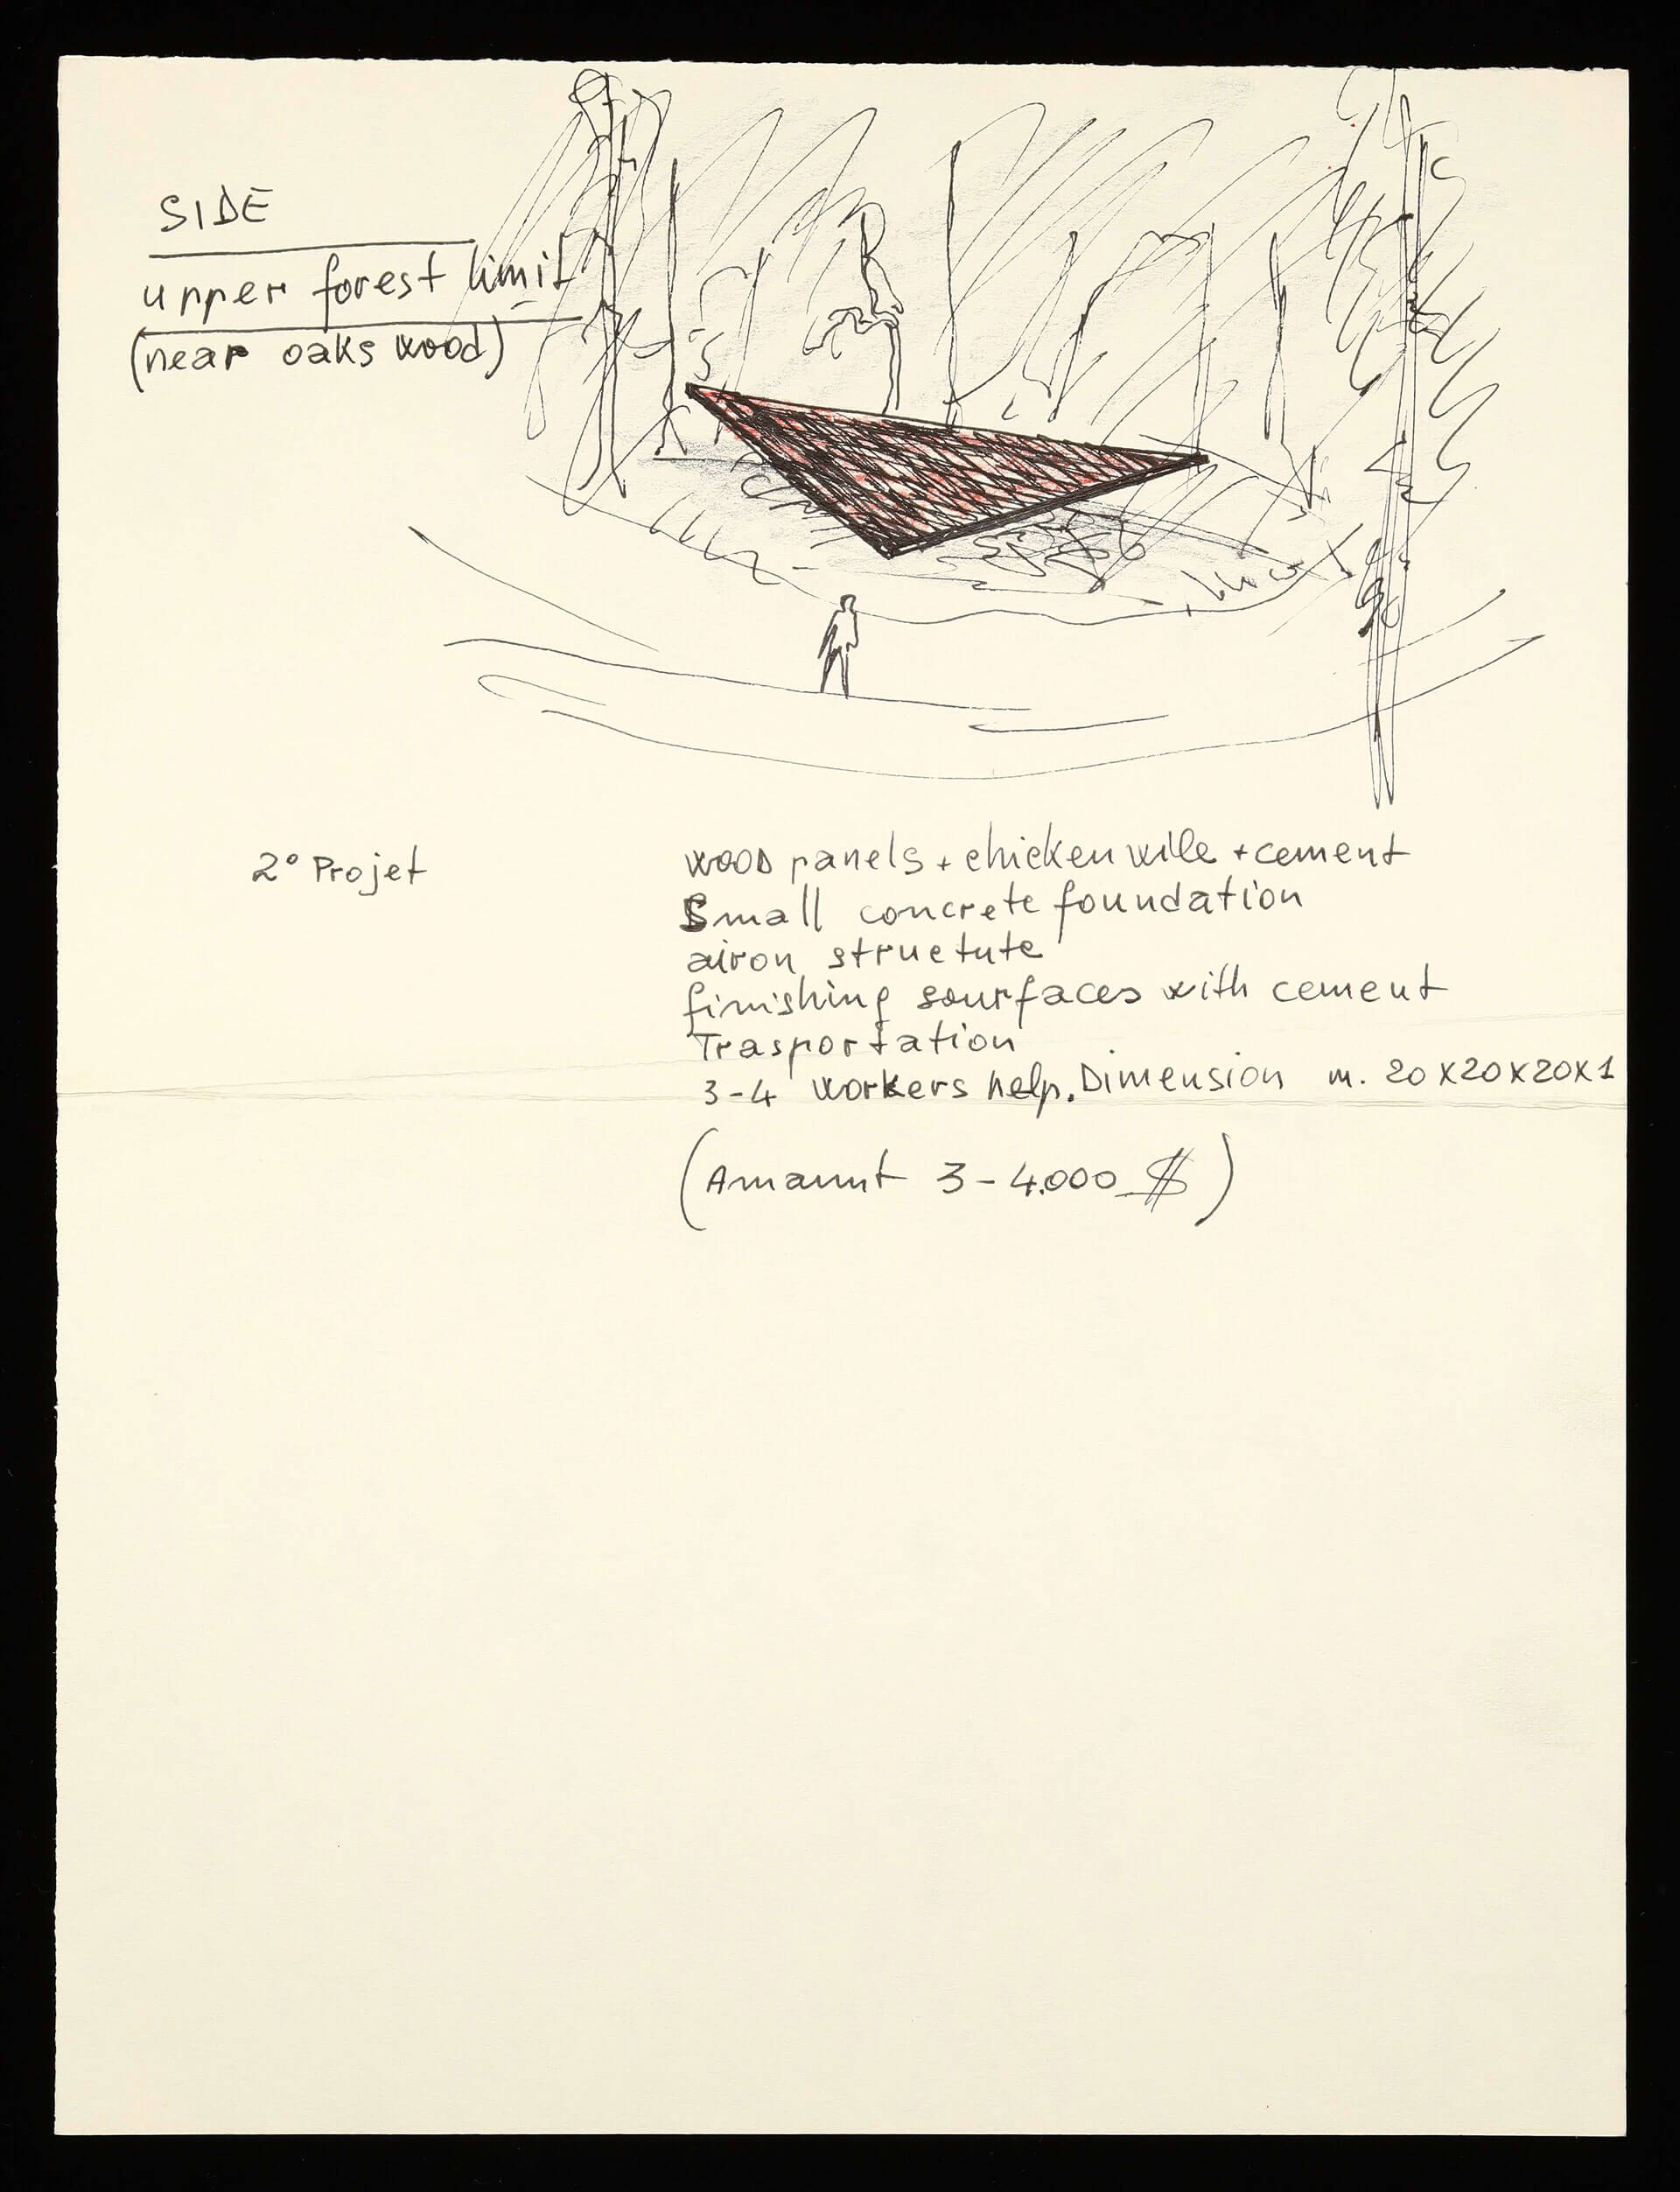 SIDE
upper forest limit
(near oaks wood)
2° Projet
wood panels + chicken wile + cement
Small concrete foundation
airon structute
finishing sourfaces with cement
Trasportation
3-4 workers help. Dimension m. 20x20x20x1
(Amaunt 3-4.000 $)